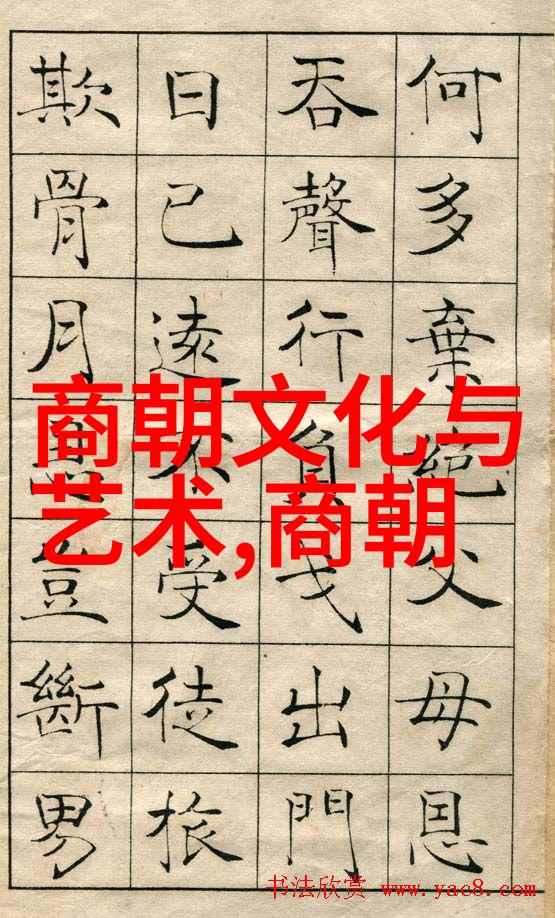 何多棄絕父母恩
吞聲行負戈出門
日已遠不受徒旅
欺骨月豈斷男
商朝文化与
艺术,商朝
书法欣赏 www.yac8.com